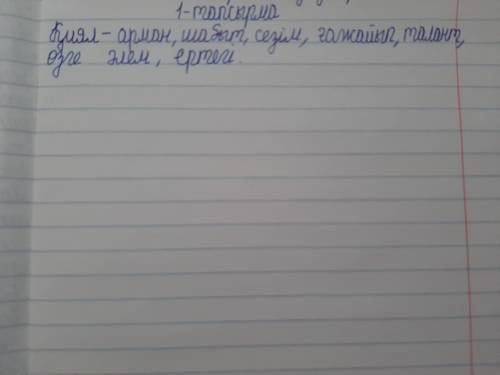 1-тапсырма
Қиял - арман, шабыт, сезім, ғажайып, талант,
өзге әлем, ертегі.